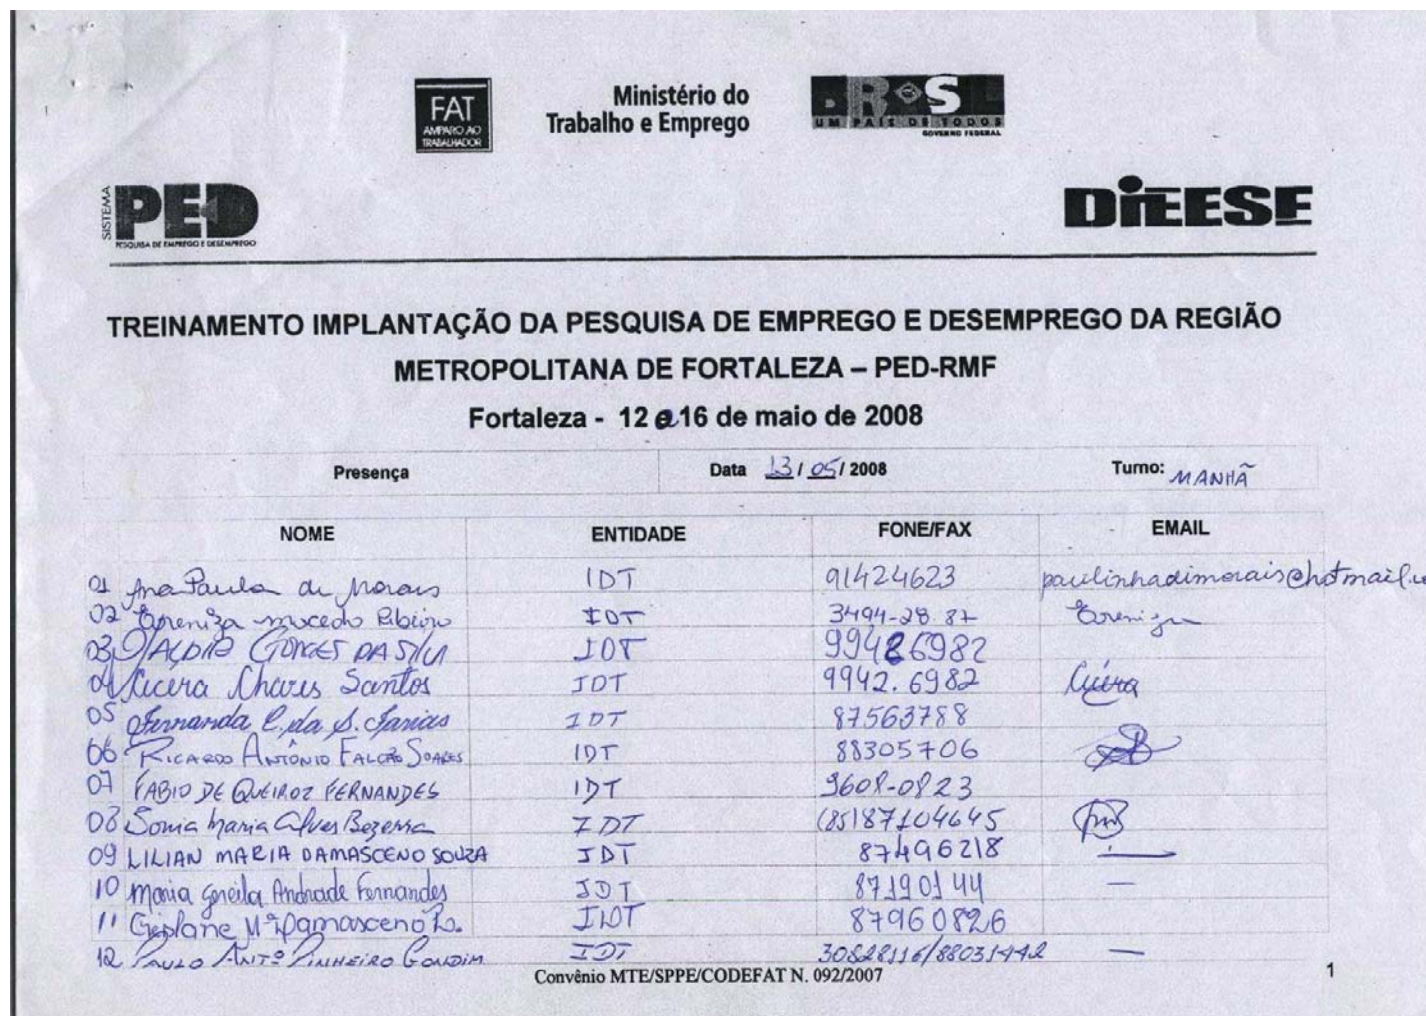 FAT
AMPARO AO
TRABALHADOR
Ministério do
Trabalho e Emprego
BRASIL
UM PAÍS DE TODOS
GOVERNO FEDERAL
SISTEMA
PED
PESQUISA DE EMPREGO E DESEMPREGO
DIEESE
TREINAMENTO IMPLANTAÇÃO DA PESQUISA DE EMPREGO E DESEMPREGO DA REGIÃO
METROPOLITANA DE FORTALEZA – PED-RMF
Fortaleza - 12 a 16 de maio de 2008
Presença Data 13/05/2008 Turno: MANHÃ
NOME ENTIDADE FONE/FAX EMAIL
01 Ana Paula de Morais IDT 91424623 paulinhadimorais@hotmail.
02 macedo Ribeiro IDT 3494-28.87
03 GOMES DA SILVA IDT 99486982
04 Cicera Chaves Santos IDT 9942.6982 Cícera
05 Fernanda C. da S. Farias IDT 87563788
06 RICARDO ANTÔNIO FALCÃO SOARES IDT 88305706
07 FABIO DE QUEIROZ FERNANDES IDT 9608-0823
08 Sonia Maria Alves Bezerra IDT (85)87104645
09 LILIAN MARIA DAMASCENO SOUZA IDT 87496218 —
10 Maria Andrade Fernandes IDT 87190144 —
11 Mª Damasceno IDT 87960826
12 PAULO ANTº PINHEIRO GONDIM IDT 30828116/88031442 —
Convênio MTE/SPPE/CODEFAT N. 092/2007
1